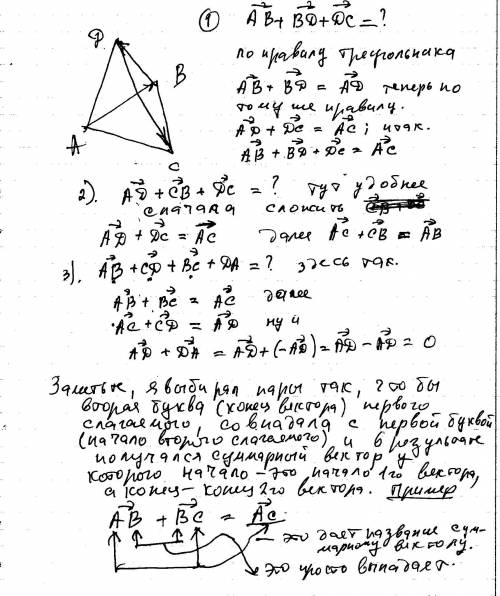 ① A͞B + B͞D + D͞C = ?
по правилу треугольника
D
B
A
C
A͞B + B͞D = A͞D теперь по
тому же правилу.
A͞D + D͞C = A͞C; итак.
A͞B + B͞D + D͞C = A͞C
2). A͞D + C͞B + D͞C = ? тут удобнее
сначала сложить
A͞D + D͞C = A͞C далее A͞C + C͞B = A͞B
3). A͞B + C͞D + B͞C + D͞A = ? здесь так.
A͞B + B͞C = A͞C далее
A͞C + C͞D = A͞D ну и
A͞D + D͞A = A͞D + (-A͞D) = A͞D - A͞D = 0
Заметьте, я выбирал пары так, что бы
вторая буква (конец вектора) первого
слагаемого, совпадала с первой буквой
(начало второго слагаемого) и в результате
получался суммарный вектор у
которого начало - это начало 1го вектора,
а конец - конец 2го вектора. Пример,
A͞B + B͞C = A͞C
- это дает название сум-
марному вектору.
это просто выпадает.